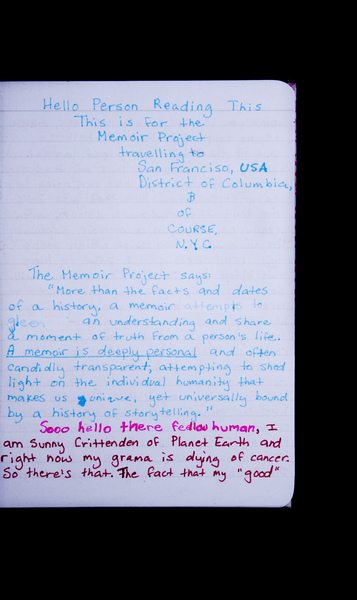 Hello Person Reading This
This is for the
Memoir Project
travelling to
San Franciso, USA
District of Columbica,
B
of
COURSE,
N.Y.C
The Memoir Project says:
"More than the facts and dates
of a history, a memoir attempts to
gleen an understanding and share
a moment of truth from a person's life.
A memoir is deeply personal and often
candidly transparent, attempting to shed
light on the individual humanity that
makes us unique, yet universally bound
by a history of storytelling."
Sooo hello there fedlow human, I
am Sunny Crittenden of Planet Earth and
right now my grama is dying of cancer.
So there's that. The fact that my "good"